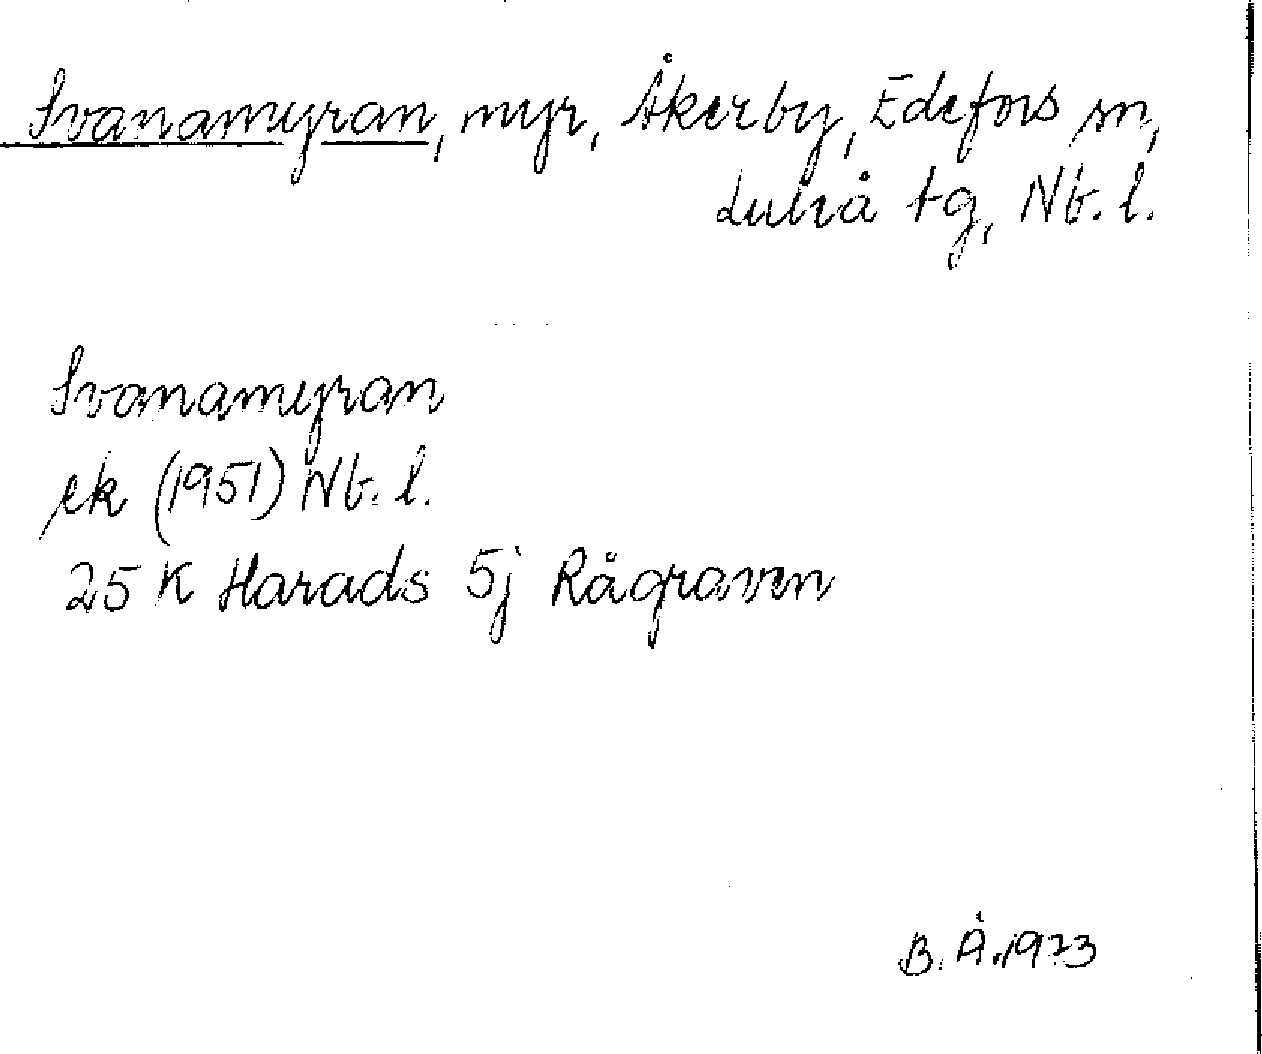 Svanamyran, myr, Åkerby, Edefors sn,
Luleå tg, Nb. l.
Svanamyran
ek (1951) Nb. l.
25 K Harads 5j Rågraven
B. Å. 1973